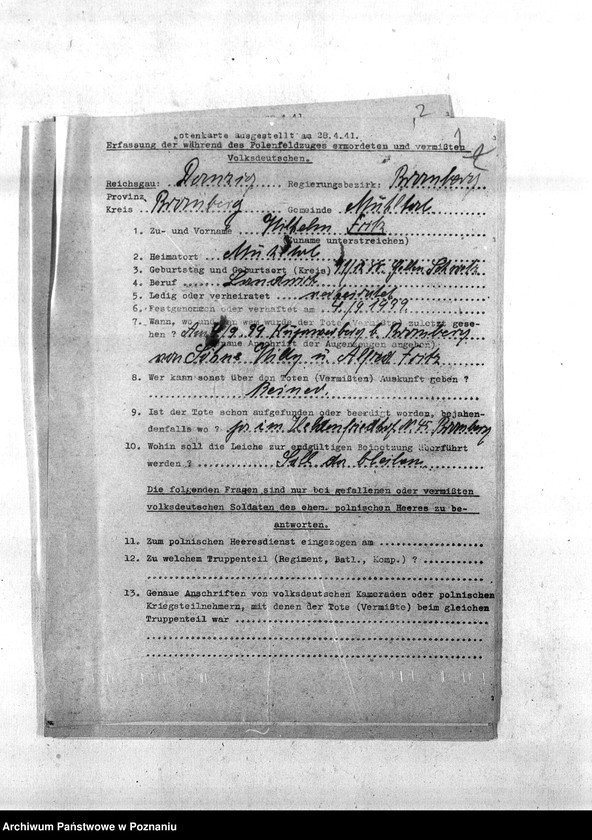 2
otenkarte ausgestellt am 28.4.41.
Erfassung der während des Polenfeldzuges ermordeten und vermißten
Volksdeutschen.
Reichsgau: Danzig Regierungsbezirk: Bromberg
Provinz
Kreis Bromberg Gemeinde Mühltal
1. Zu- und Vorname Wilhelm Fritz
(Zuname unterstreichen)
2. Heimatort Mühltal
3. Geburtstag und Geburtsort (Kreis)
4. Beruf Landwirt
5. Ledig oder verheiratet verheiratet
6. Festgenommen oder verhaftet am 4./9.1939
7. Wann, wo und von wem wurde der Tote (Vermißte) zuletzt gese-
hen ? Am /9.39 b. Bromberg
(genaue Anschrift der Augenzeugen angeben)
von Söhne Willy u. Alfred Fritz
8. Wer kann sonst über den Toten (Vermißten) Auskunft geben ?
Keiner.
9. Ist der Tote schon aufgefunden oder beerdigt worden, bejahen-
denfalls wo ? ja im Heldenfriedhof N. 45, Bromberg
10. Wohin soll die Leiche zur endgültigen Beisetzung überführt
werden ? Soll da bleiben
Die folgenden Fragen sind nur bei gefallenen oder vermißten
volksdeutschen Soldaten des ehem. polnischen Heeres zu be-
antworten.
11. Zum polnischen Heeresdienst eingezogen am
12. Zu welchem Truppenteil (Regiment, Batl., Komp.) ?
13. Genaue Anschriften von volksdeutschen Kameraden oder polnischen
Kriegsteilnehmern, mit denen der Tote (Vermißte) beim gleichen
Truppenteil war
Archiwum Państwowe w Poznaniu